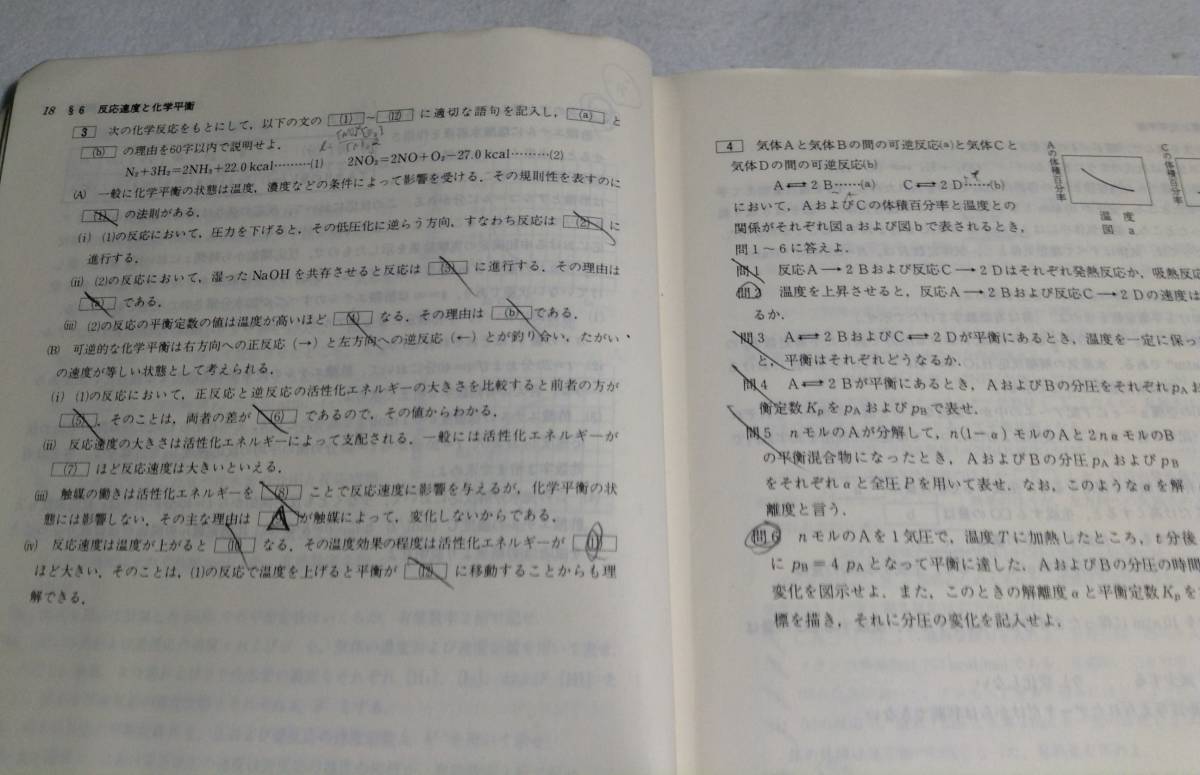 18 §6 反応速度と化学平衡
3 次の化学反応をもとにして，以下の文の (1) ～ (12) に適切な語句を記入し， (a) と
(b) の理由を60字以内で説明せよ．
N₂+3H₂=2NH₃+22.0 kcal………(1) 2NO₂=2NO+O₂−27.0 kcal………(2)
(A) 一般に化学平衡の状態は温度，濃度などの条件によって影響を受ける．その規則性を表すのに
(1) の法則がある．
(i) (1)の反応において，圧力を下げると，その低圧化に逆らう方向，すなわち反応は (2) に
進行する．
(ii) (2)の反応において，湿ったNaOHを共存させると反応は (3) に進行する．その理由は
(a) である．
(iii) (2)の反応の平衡定数の値は温度が高いほど (4) なる．その理由は (b) である．
(B) 可逆的な化学平衡は右方向への正反応（→）と左方向への逆反応（←）とが釣り合い，たがい
の速度が等しい状態として考えられる．
(i) (1)の反応において，正反応と逆反応の活性化エネルギーの大きさを比較すると前者の方が
(5) ．そのことは，両者の差が (6) であるので，その値からわかる．
(ii) 反応速度の大きさは活性化エネルギーによって支配される．一般には活性化エネルギーが
(7) ほど反応速度は大きいといえる．
(iii) 触媒の働きは活性化エネルギーを (8) ことで反応速度に影響を与えるが，化学平衡の状
態には影響しない．その主な理由は が触媒によって，変化しないからである．
(iv) 反応速度は温度が上がると (10) なる．その温度効果の程度は活性化エネルギーが (11)
ほど大きい．そのことは，(1)の反応で温度を上げると平衡が (12) に移動することからも理
解できる．
4 気体Aと気体Bの間の可逆反応(a)と気体Cと
気体Dの間の可逆反応(b)
A⇄2B……(a) C⇄2D……(b)
において，AおよびCの体積百分率と温度との
関係がそれぞれ図aおよび図bで表されるとき，
問1～6に答えよ．
Aの体積百分率
温度
図 a
Cの体積百分率
問1 反応A→2Bおよび反応C→2Dはそれぞれ発熱反応か，吸熱反応
問2 温度を上昇させると，反応A→2Bおよび反応C→2Dの速度は
るか．
問3 A⇄2BおよびC⇄2Dが平衡にあるとき，温度を一定に保っ
と，平衡はそれぞれどうなるか．
問4 A⇄2Bが平衡にあるとき，AおよびBの分圧をそれぞれpAお
衡定数KpをpAおよびpBで表せ．
問5 nモルのAが分解して，n(1−α)モルのAと2nαモルのB
の平衡混合物になったとき，AおよびBの分圧pAおよびpB
をそれぞれαと全圧Pを用いて表せ．なお，このようなαを解
離度と言う．
問6 nモルのAを1気圧で，温度Tに加熱したところ，t分後
にpB=4pAとなって平衡に達した．AおよびBの分圧の時間
変化を図示せよ．また，このときの解離度αと平衡定数Kpを
標を描き，それに分圧の変化を記入せよ．